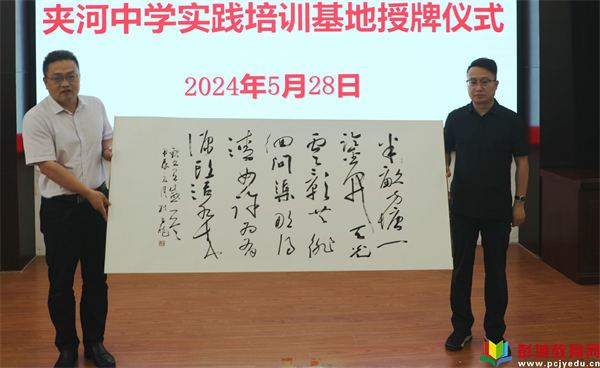 夹河中学实践培训基地授牌仪式
2024年5月28日
半畝方塘一
鑒開天光
雲影共徘
徊问渠那得
清如许为有
源头活水来
彭城教育网
www.pcjyedu.cn